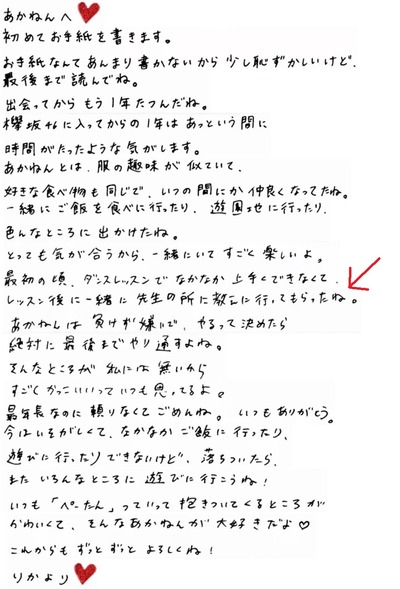 あかねんへ
初めてお手紙を書きます。
お手紙なんてあんまり書かないから少し恥ずかしいけど、
最後まで読んでね。
出会ってからもう1年たつんだね。
欅坂46に入ってからの1年はあっという間に
時間がたったような気がします。
あかねんとは、服の趣味が似ていて、
好きな食べ物も同じで、いつの間にか仲良くなってたね。
一緒にご飯を食べに行ったり、遊園地に行ったり、
色んなところに出かけたね。
とっても気が合うから、一緒にいてすごく楽しいよ。
最初の頃、ダンスレッスンでなかなか上手くできなくて、
レッスン後に一緒に先生の所に教えに行ってもらったね。
あかねんは負けず嫌いで、やるって決めたら
絶対に最後までやり通すよね。
そんなところが私には無いから
すごくかっこいいっていつも思ってるよ。
最年長なのに頼りなくてごめんね。いつもありがとう。
今はいそがしくて、なかなかご飯に行ったり、
遊びに行ったりできないけど、落ちついたら、
またいろんなところに遊びに行こうね!
いつも「ぺーたん」っていって抱きついてくるところが
かわいくて、そんなあかねんが大好きだよ♡
これからもずっとずっとよろしくね!
りかより